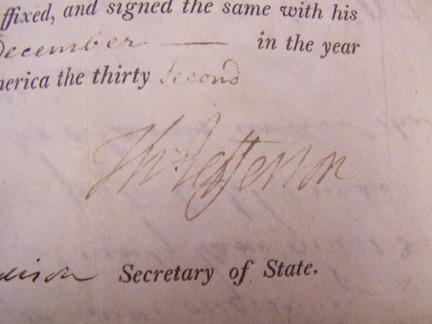 ffixed, and signed the same with his
December — in the year
merica the thirty second
Th: Jefferson
dison Secretary of State.